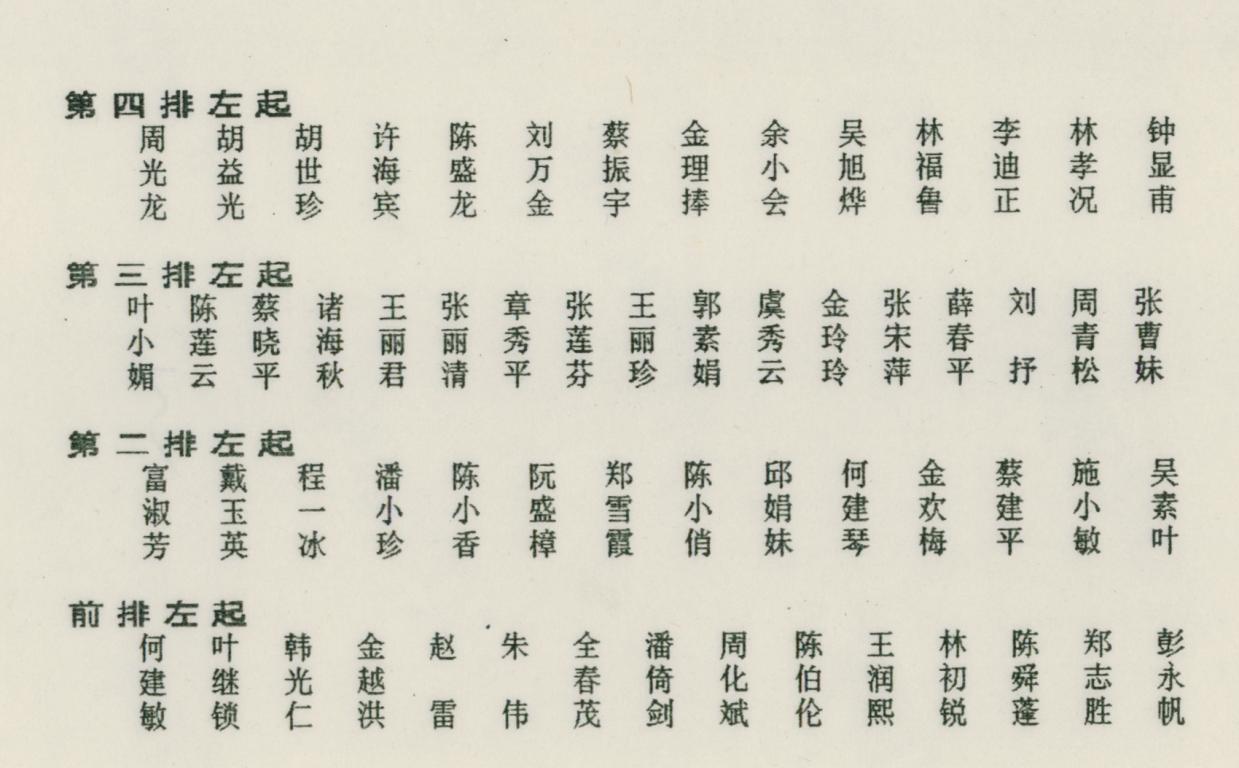 第四排左起
周光龙 胡益光 胡世珍 许海宾 陈盛龙 刘万金 蔡振宇 金理捧 余小会 吴旭烨 林福鲁 李迪正 林孝况 钟显甫
第三排左起
叶小媚 陈莲云 蔡晓平 诸海秋 王丽君 张丽清 章秀平 张莲芬 王丽珍 郭素娟 虞秀云 金玲玲 张宋萍 薛春平 刘抒 周青松 张曹妹
第二排左起
富淑芳 戴玉英 程一冰 潘小珍 陈小香 阮盛樟 郑雪霞 陈小俏 邱娟妹 何建琴 金欢梅 蔡建平 施小敏 吴素叶
前排左起
何建敏 叶继锁 韩光仁 金越洪 赵雷 朱伟 全春茂 潘倚剑 周化斌 陈伯伦 王润熙 林初锐 陈舜蓬 郑志胜 彭永帆